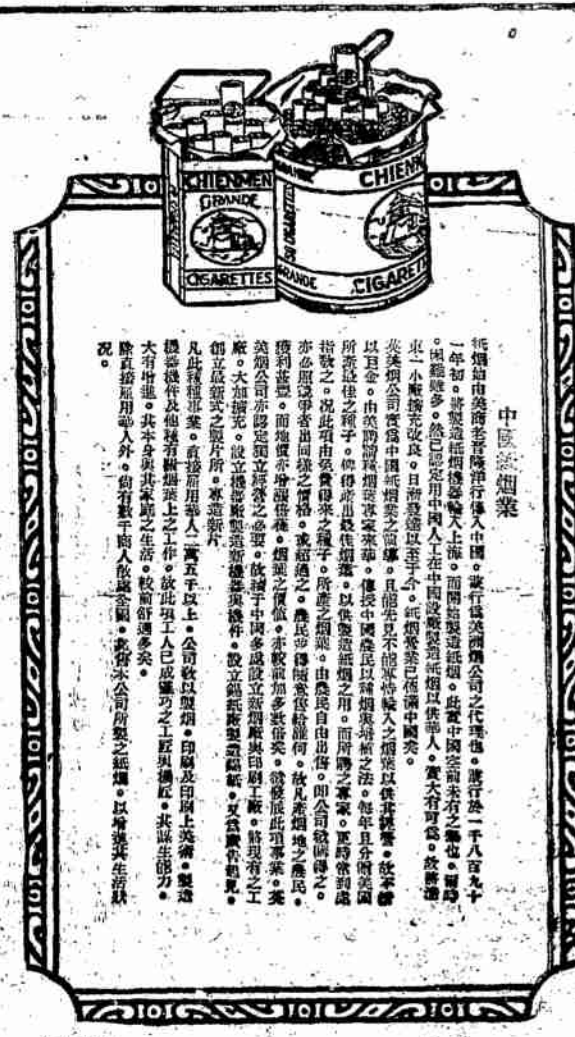 CHIENMEN
GRANDE
CIGARETTES
GRANDE
CHIENM
50 CIGARETTES
GRANDE
CIGARET
中國紙烟業
紙烟始由英商老晉隆洋行傳入中國。該行爲美洲烟公司之代理也。該行於一千八百九十
一年初。將製造紙烟機器輸入上海。而開始製造紙烟。此實中國空前未有之舉也。爾時
。困難雖多。然已認定用中國人工在中國設廠製造紙烟以供華人。實大有可爲。故將浦
東一小廠擴充改良。日漸發達以至于今。紙烟營業已徧滿中國矣。
英美烟公司實爲中國紙烟業之前導。且能先見不能專恃輸入之烟葉以供其經營。故不惜
以巨金。由美聘請種烟葉專家來華。傳授中國農民以種烟與培植之法。每年且分贈美國
所產最佳之種子。俾得產出最佳烟葉。以供製造紙烟之用。而所聘之專家。更時常到處
指教之。況此項由免費得來之種子。所產之烟葉。由農民自由出售。即公司欲購得之。
亦必照競爭者出同樣之價格。或超過之。農民亦得隨意售給誰何。故凡產烟地之農民。
獲利甚豐。而地價亦增漲倍蓰。烟葉之價值。亦較前加多數倍矣。欲發展此項事業。英
美烟公司亦認定獨立經營之必要。故續于中國多處設立新烟廠與印刷工廠。將現有之工
廠。大加擴充。設立機器廠製造新機器與機件。設立錫紙廠製造錫紙。又爲廣告起見。
創立最新式之製片所。專造新片
凡此種種事業。直接雇用華人二萬五千以上。公司教以製烟。印刷及印刷上美術。製造
機器機件及他種有關烟葉上之工作。故此項工人已成靈巧之工匠與機匠。其謀生能力。
大有增進。其本身與其家庭之生活。較前舒適多矣。
除直接雇用華人外。尚有數千商人散處全國。販售本公司所製之紙烟。以增進其生活狀
况。